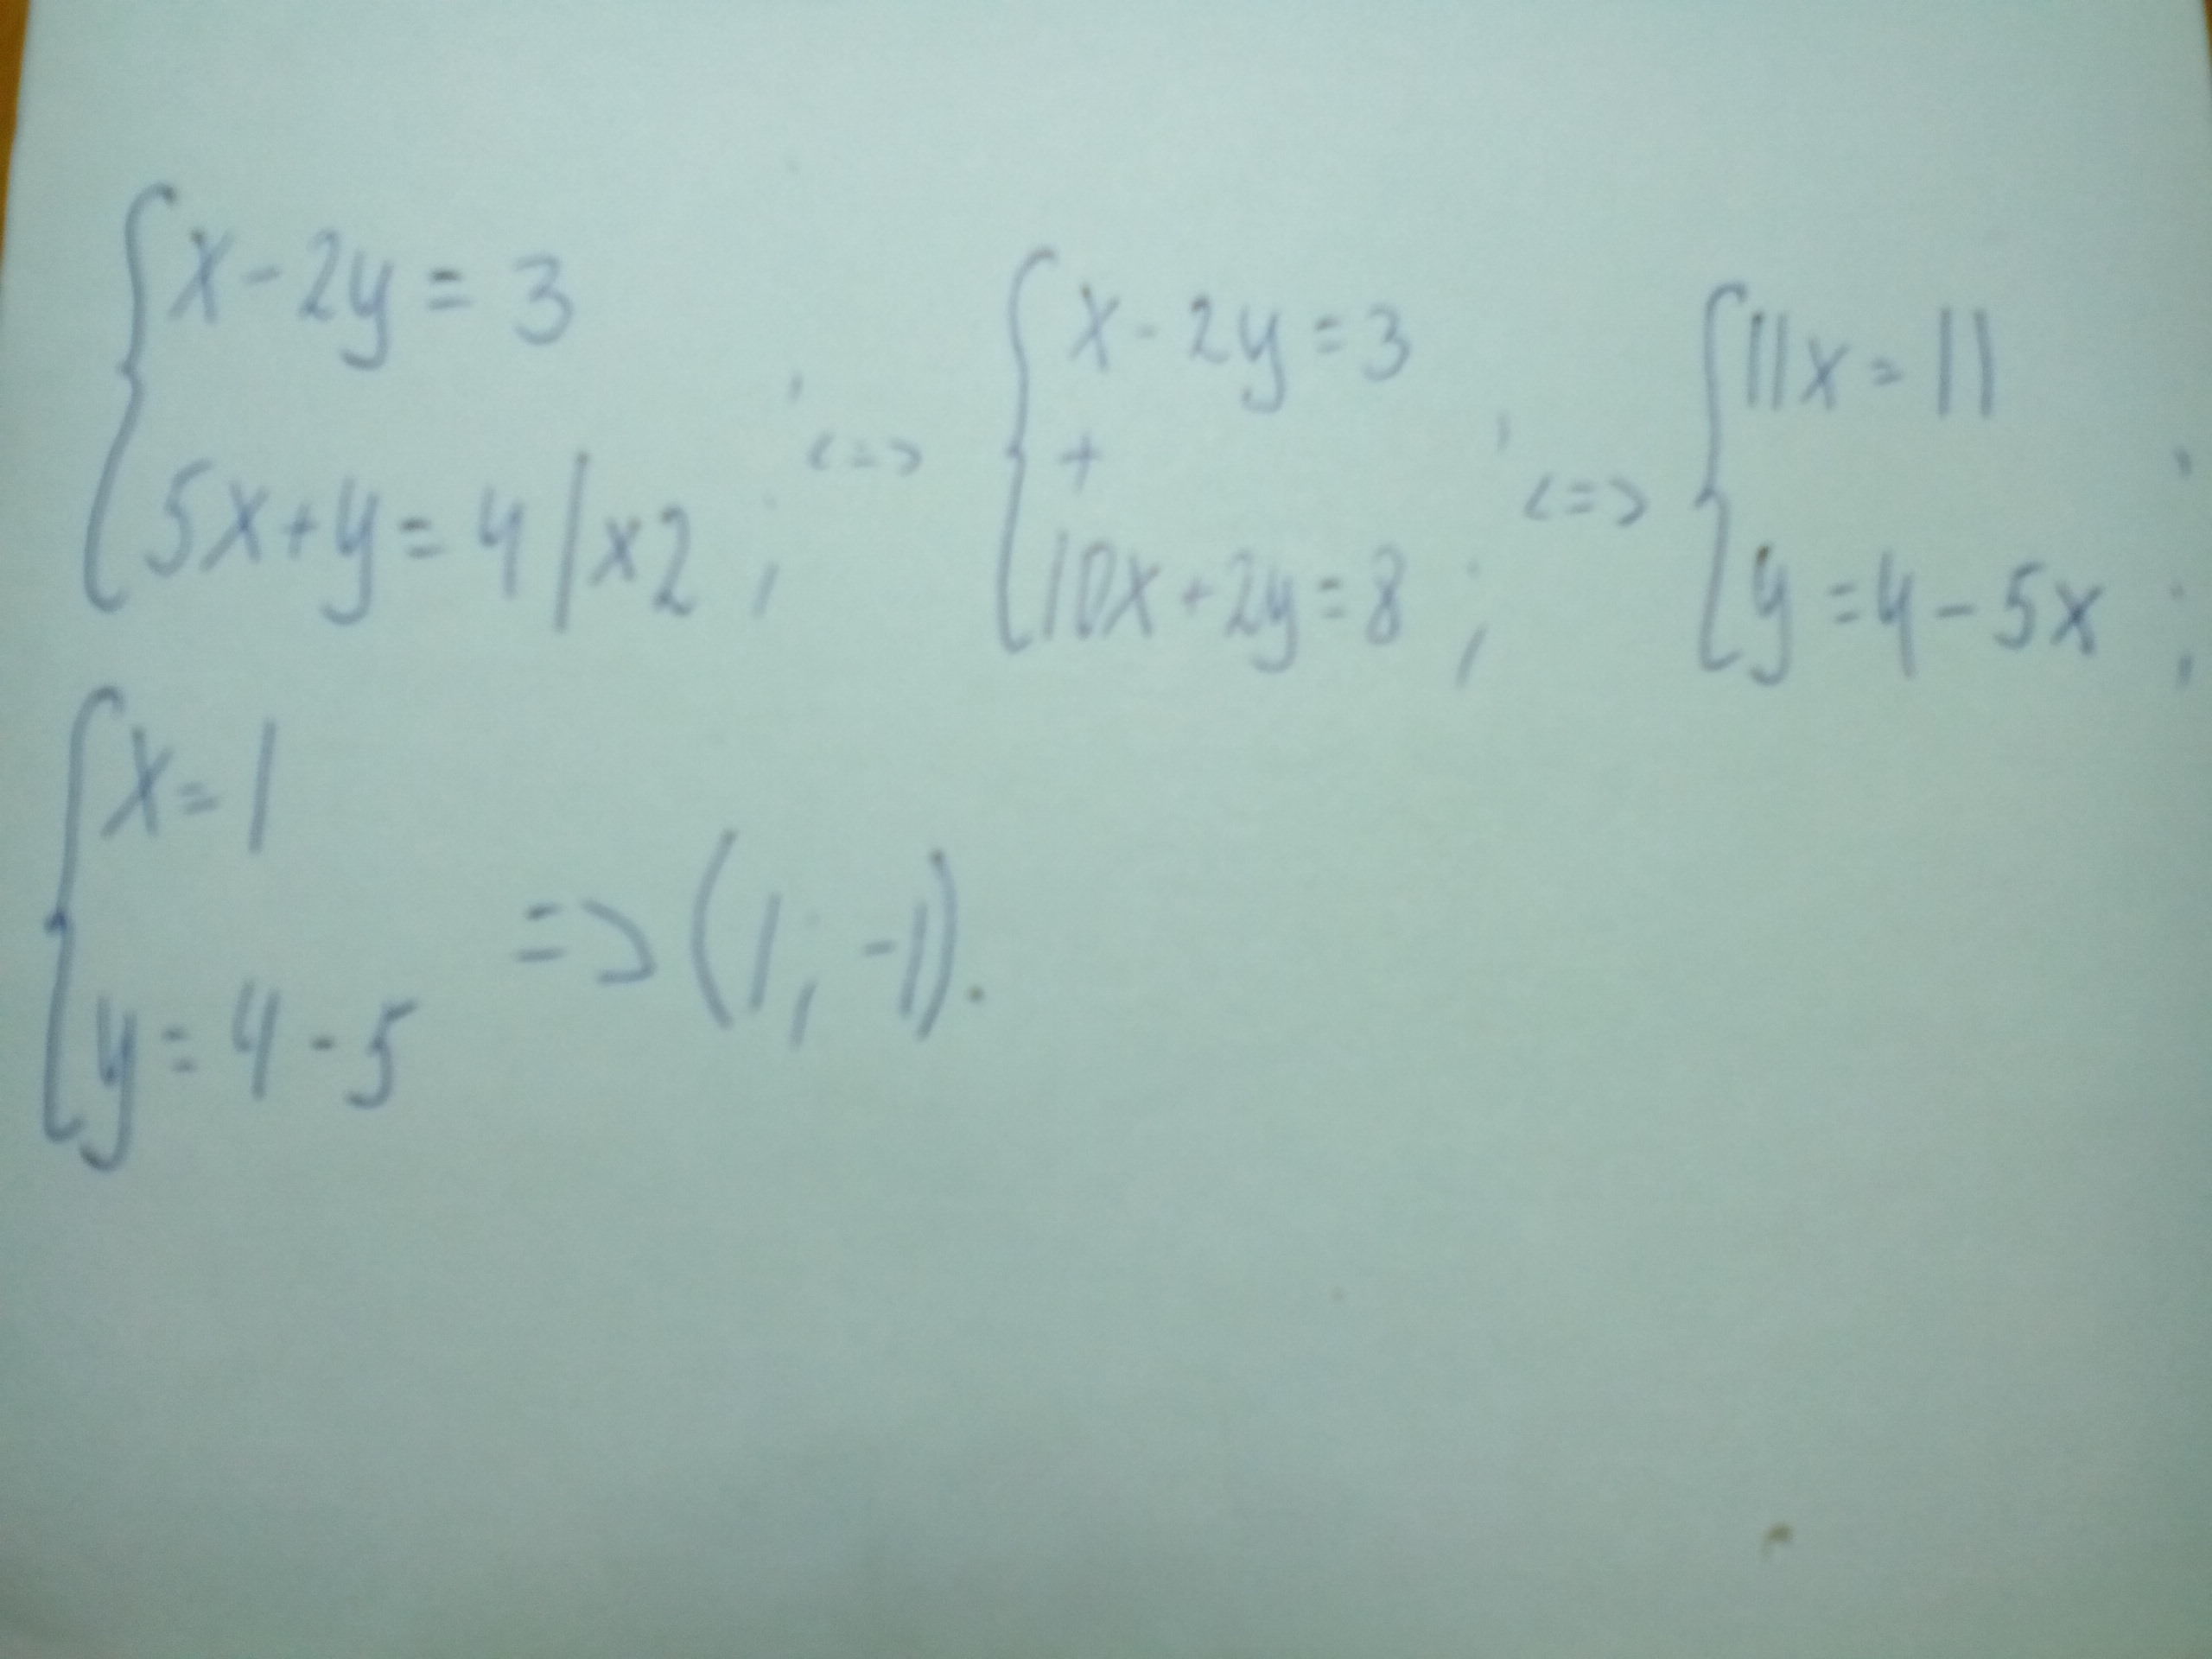 {x-2y=3
5x+y=4|x2; <=>
{x-2y=3
+
10x+2y=8; <=>
{11x=11
y=4-5x;
{x=1
y=4-5 => (1;-1).